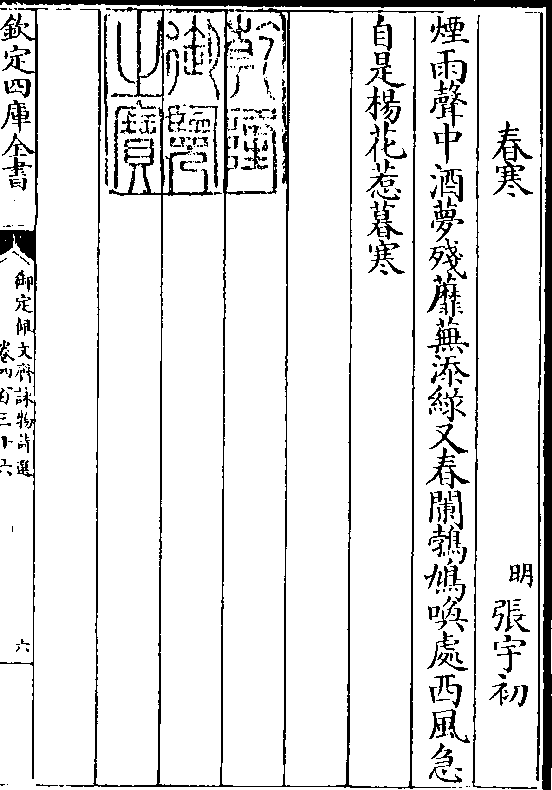 春寒 明 張宇初
煙雨聲中酒夢殘蘼蕪添綠又春闌鵓鳩喚處西風急
自是楊花惹暮寒
乾隆
御覽
之寶
欽定四庫全書
御定佩文齋詠物詩選
卷四百三十六
六